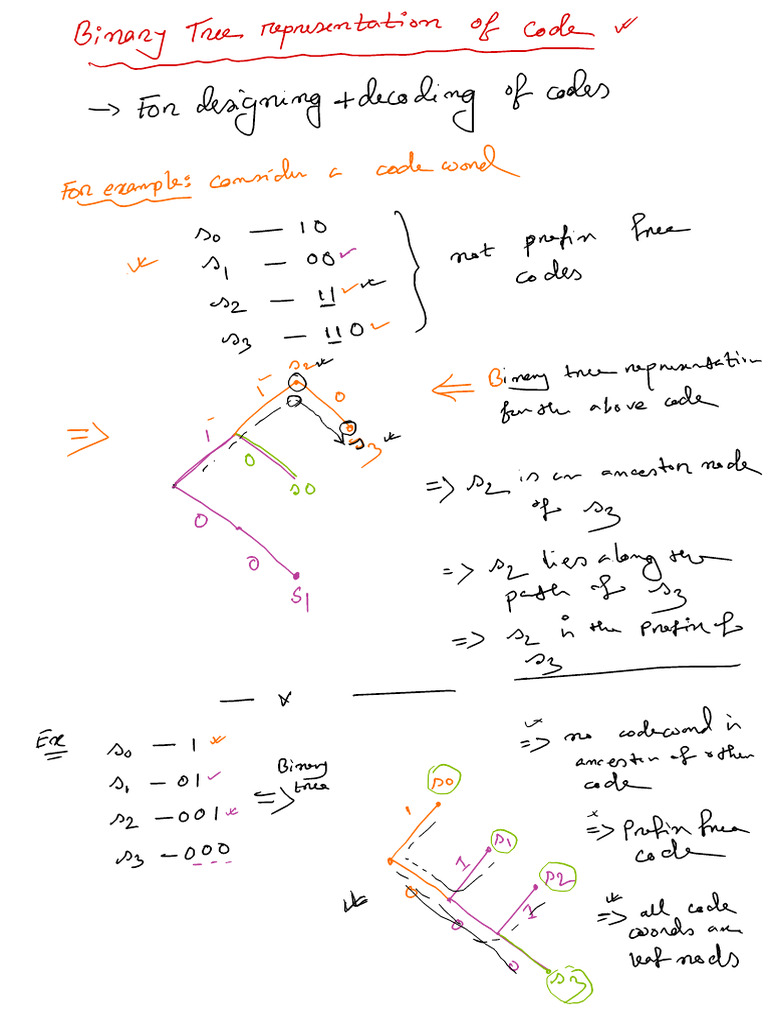 Binary Tree representation of code
→ For designing + decoding of codes
For example: consider a code word
s0 — 10
s1 — 00
s2 — 11
s3 — 110
not prefix free
codes
⇐ Binary tree representation
for the above code
⇒
1
1
s2
0
s3
0
s0
0
0
s1
⇒ s2 is an ancestor node
of s3
⇒ s2 lies along the
path of s3
⇒ s2 is the prefix of
s3
— x —
Ex
s0 — 1
s1 — 01
s2 — 001
s3 — 000
⇒ Binary
tree
1
s0
0
1
s1
0
1
s2
0
s3
⇒ no codeword is
ancestor of other
code
⇒ Prefix free
code
⇒ all code
words are
leaf nods